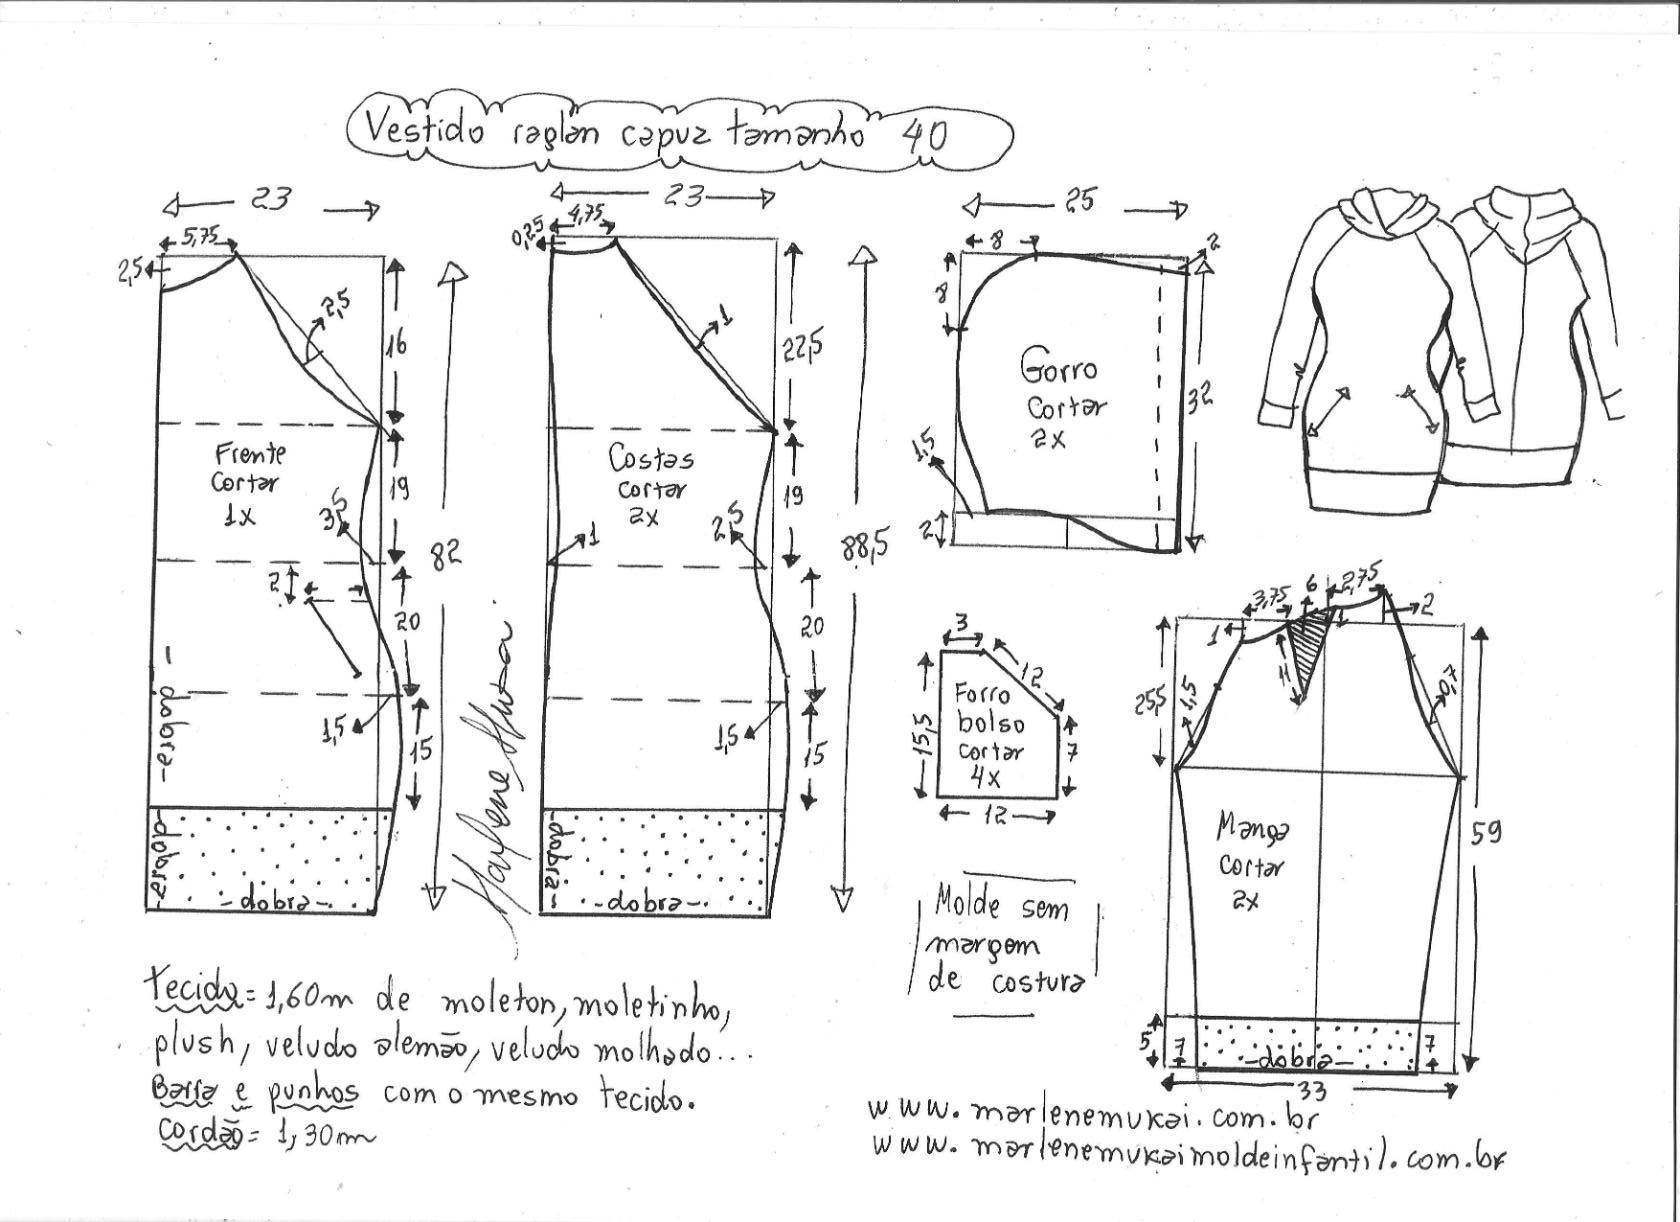 Vestido raglan capuz tamanho 40
23
5,75
2,5
2,5
16
Frente
cortar
1x
3,5
19
82
2
20
-dobra-
1,5
15
-dobra-
-dobra-
23
4,75
0,25
1
22,5
Costas
cortar
2x
2,5
19
1
88,5
20
1,5
15
-dobra-
-dobra-
25
8
2
8
Gorro
cortar
2x
32
1,5
2
3
12
Forro
bolso
cortar
4x
15,5
7
12
3,75
6
2,75
2
1
1
11
25,5
1,5
0,7
Manga
cortar
2x
59
5
7
-dobra-
7
33
Molde sem
margem
de costura
Marlene Mukai
tecido= 1,60m de moleton, moletinho,
plush, veludo alemão, veludo molhado...
Barra e punhos com o mesmo tecido.
cordão= 1,30m
www.marlenemukai.com.br
www.marlenemukaimoldeinfantil.com.br